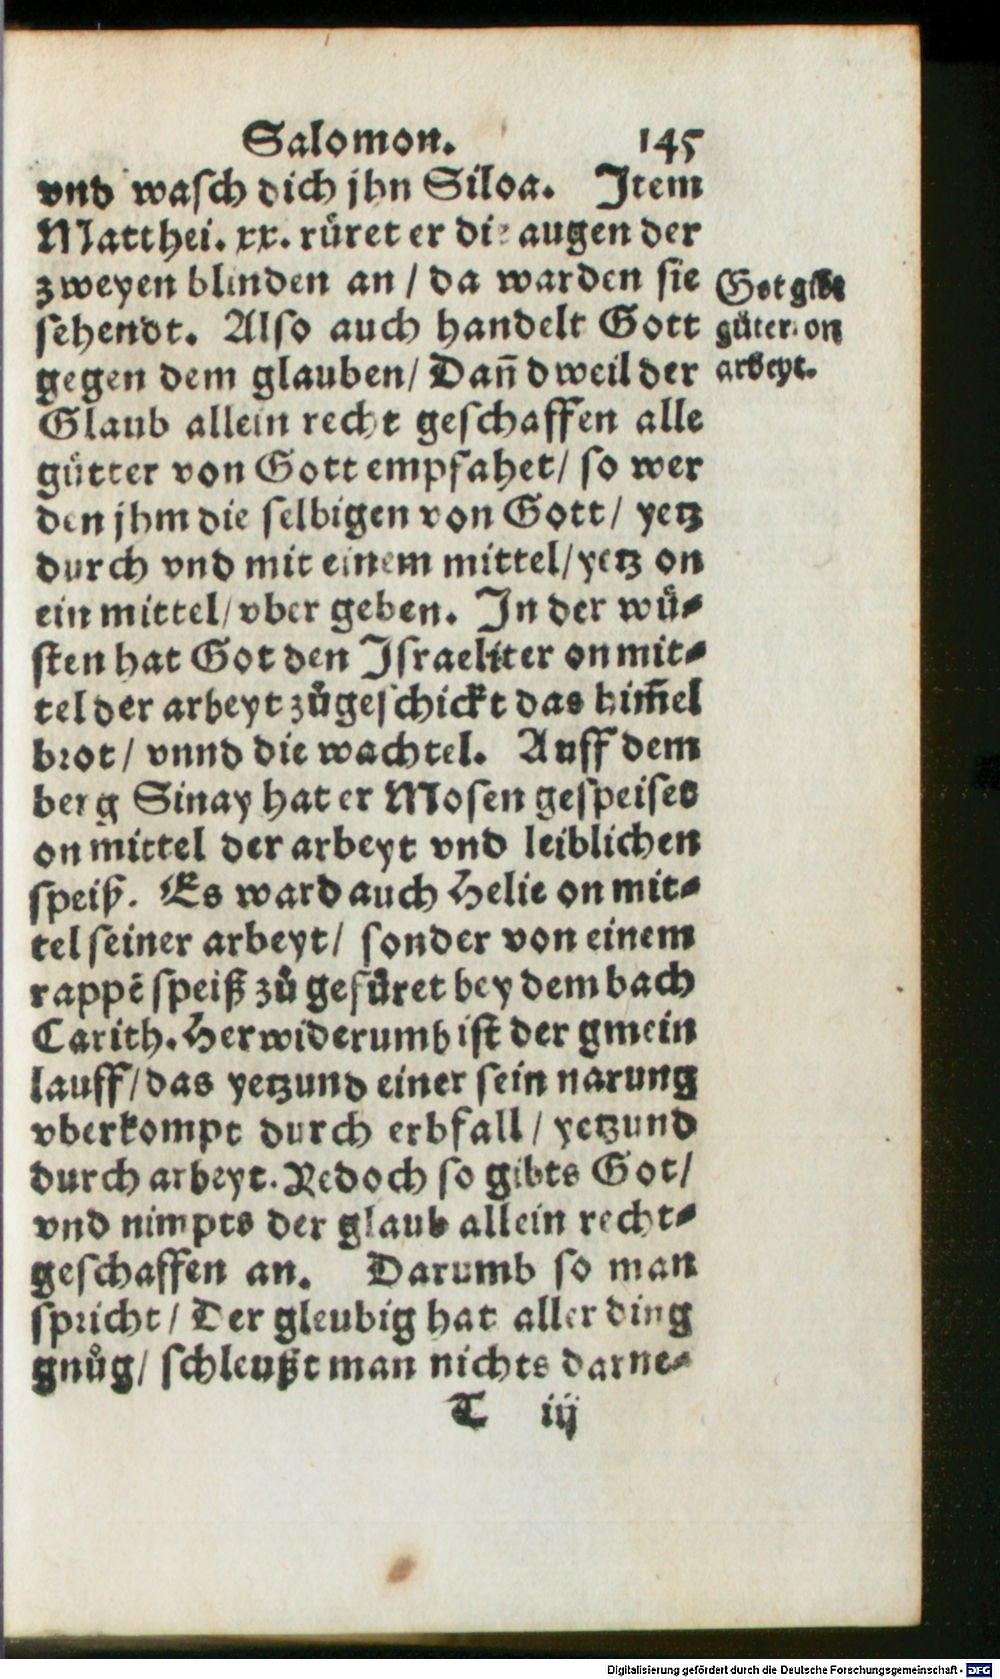 Salomon. 145
vnd wasch dich jhn Siloa. Item
Matthei. xx. rüret er die augen der
zweyen blinden an / da warden sie
sehendt. Also auch handelt Gott
gegen dem glauben / Dañ dweil der
Glaub allein recht geschaffen alle
gütter von Gott empfahet / so wer
den jhm die selbigen von Gott / yetz
durch vnd mit einem mittel / yetz on
ein mittel / vber geben. In der wü-
sten hat Got den Israeliter on mit-
tel der arbeyt zůgeschickt das him̃el
brot / vnnd die wachtel. Auff dem
berg Sinay hat er Mosen gespeiset
on mittel der arbeyt vnd leiblichen
speiß. Es ward auch Helie on mit-
tel seiner arbeyt / sonder von einem
rappē speiß zů gefüret bey dem bach
Carith. Herwiderumb ist der gmein
lauff / das yetzund einer sein narung
vberkompt durch erbfall / yetzund
durch arbeyt. Yedoch so gibts Got /
vnd nimpts der glaub allein recht-
geschaffen an. Darumb so man
spricht / Der gleubig hat aller ding
gnůg / schleußt man nichts darne-
T iij
Got gibt
güter on
arbeyt.
Digitalisierung gefördert durch die Deutsche Forschungsgemeinschaft - DFG